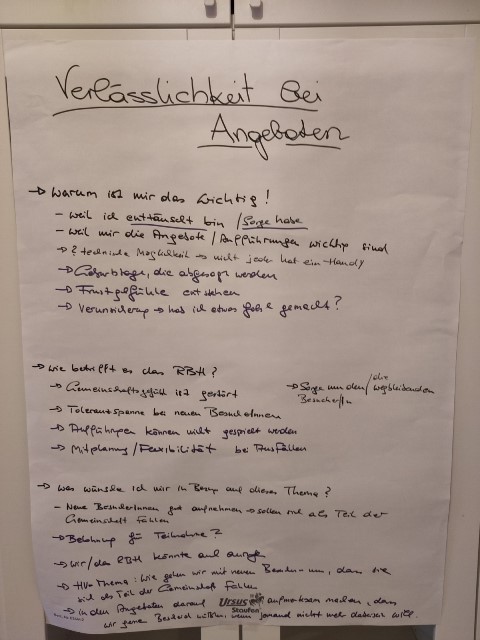 Verlässlichkeit bei
Angeboten
→ Warum ist mir das wichtig!
- weil ich enttäuscht bin / Sorge habe
- weil mir die Angebote / Aufführungen wichtig sind
→ ? technische Möglichkeit → nicht jede hat ein Handy
→ Geburtstage, die abgesagt werden
→ Frustgefühle entstehen
→ Verunsicherung → hab ich etwas falsch gemacht?
→ Wie betrifft es das RBH?
→ Gemeinschaftsgefühl ist gestört
→ Sorge um den / die wegbleibenden
Besucher/In
→ Toleranzspanne bei neuen BesucherInnen
→ Aufführungen können nicht gespielt werden
→ Mitplanung / Flexibilität bei Ausfällen
→ Was wünsche ich mir in Bezug auf dieses Thema?
- Neue BesucherInnen gut aufnehmen → sollen sich als Teil der
Gemeinschaft fühlen
→ Belohnung für Teilnahme?
→ wir / das RBH könnte auf
→ HV-Thema: Wie gehen wir mit neuen um, dass sie
sich als Teil der Gemeinschaft fühlen
→ in den Angeboten darauf aufmerksam machen, dass
wir gerne Bescheid wüssten, wenn jemand nicht mehr dabei sein will.
Ursus
Staufen